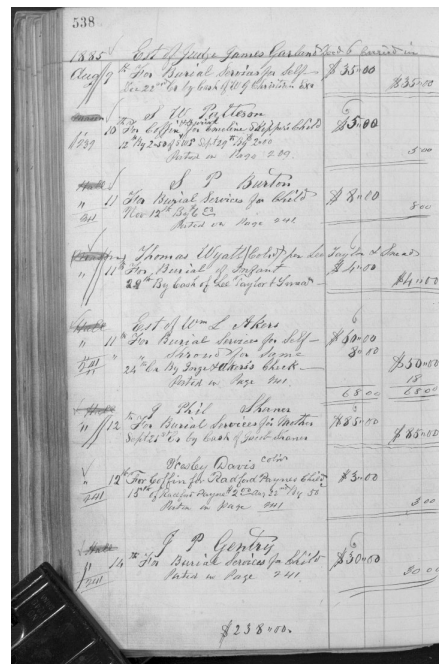 538
1885 Est of Judge James Garland
Aug 9th For Burial Services for Self $35.00
Nov 22nd Cr by Cash of W G $35.00
S W Patteson 6
10th For Coffin for Caroline Child $5.00
239 12th By 2.50 Sept 29th By 2.00 5.00
Posted in Page 239.
S P Burton
" 11 For Burial Services for Child $8.00
241 Nov 12th By 8.00
Posted in Page 241
Thomas Wyatt (Cold) per Lee Taylor & Snead
" 11th For Burial of Infant $4.00
28th By Cash of Lee Taylor & Snead $4.00
Est of Wm L Akers 6
" 11th For Burial Services for Self $60.00
" Shroud for Same 8.00
24th Cr By Check $50.00
Posted in Page 241. 18
68.00 68.00
J Phil Shaner
" 12th For Burial Services for Mother $85.00
Sept 21st Cr by Cash of Shaner $85.00
Wesley Davis cold
" 12th For Coffin for Radford Paynes Child $3.00
241 15th 50c 3.00
Posted in page 241
J P Gentry
" 14th For Burial Services for Child $30.00
241 Posted in Page 241. 30.00
$238.00.